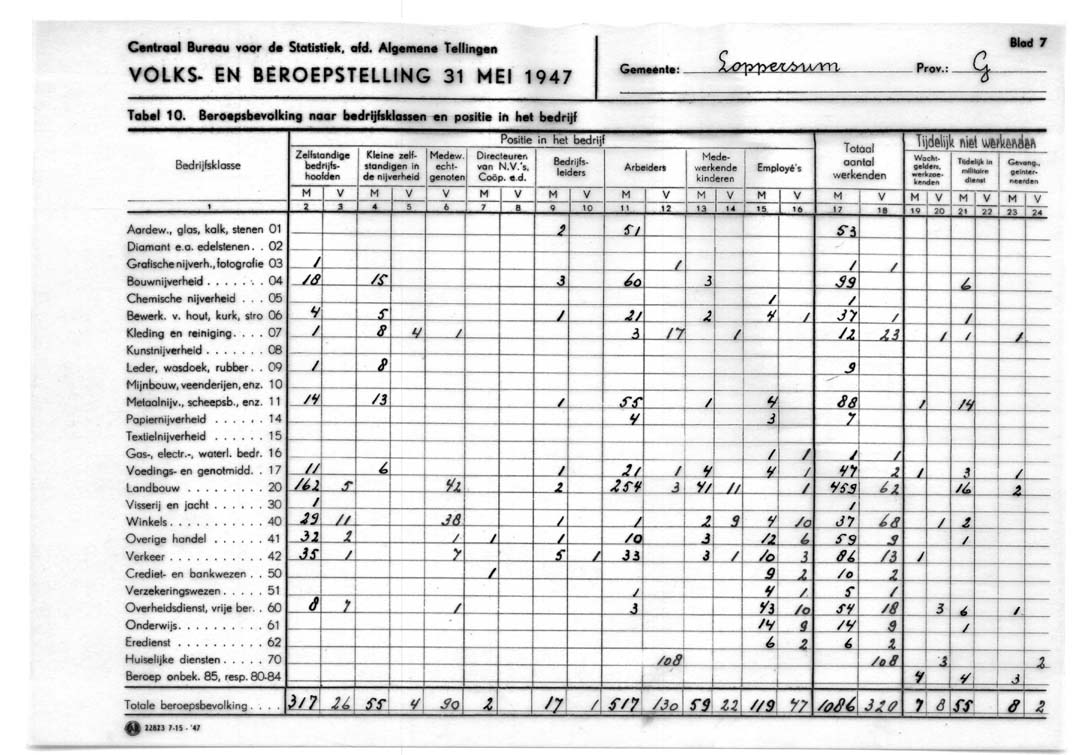 Centraal Bureau voor de Statistiek, afd. Algemene Tellingen
VOLKS- EN BEROEPSTELLING 31 MEI 1947
Gemeente: Loppersum Prov.: G
Blad 7
Tabel 10. Beroepsbevolking naar bedrijfsklassen en positie in het bedrijf
Bedrijfsklasse
Positie in het bedrijf
Zelfstandige bedrijfs-hoofden Kleine zelf-standigen in de nijverheid Medew. echt-genoten Directeuren van N.V.'s, Coöp. e.d. Bedrijfs-leiders Arbeiders Mede-werkende kinderen Employé's Totaal aantal werkenden
Tijdelijk niet werkenden
Wacht-gelden, werkzoe-kenden Tijdelijk in militaire dienst Gevang., geïnter-neerden
M V M V V M V M V M V M V M V M V M V M V M V
1 2 3 4 5 6 7 8 9 10 11 12 13 14 15 16 17 18 19 20 21 22 23 24
Aardew., glas, kalk, stenen 01 2 51 53
Diamant e.a. edelstenen. . 02
Grafische nijverh., fotografie 03 1 1 1 1
Bouwnijverheid . . . . . . . 04 18 15 3 60 3 99 6
Chemische nijverheid . . . 05 1 1
Bewerk. v. hout, kurk, stro 06 4 5 1 21 2 4 1 37 1 1
Kleding en reiniging. . . . 07 1 8 4 1 3 17 1 12 23 1 1 1
Kunstnijverheid . . . . . . . 08
Leder, wasdoek, rubber. . 09 1 8 9
Mijnbouw, veenderijen, enz. 10
Metaalnijv., scheepsb., enz. 11 14 13 1 55 1 4 88 1 14
Papiernijverheid . . . . . . 14 4 3 7
Textielnijverheid . . . . . . 15
Gas-, electr.-, waterl. bedr. 16 1 1 1 1
Voedings- en genotmidd. . 17 11 6 1 21 1 4 4 1 47 2 1 3 1
Landbouw . . . . . . . . . 20 162 5 42 2 254 3 41 11 1 459 62 16 2
Visserij en jacht . . . . . . 30 1 1
Winkels . . . . . . . . . . . 40 29 11 38 1 1 2 9 4 10 37 68 1 2
Overige handel . . . . . . 41 32 2 1 1 1 10 3 12 6 59 9 1
Verkeer . . . . . . . . . . . 42 35 1 7 5 1 33 3 1 10 3 86 13 1
Crediet- en bankwezen . . 50 1 9 2 10 2
Verzekeringswezen . . . . . 51 1 4 1 5 1
Overheidsdienst, vrije ber. . 60 8 7 1 3 43 10 54 18 3 6 1
Onderwijs. . . . . . . . . . 61 14 9 14 9 1
Eredienst . . . . . . . . . . 62 6 2 6 2
Huiselijke diensten . . . . . 70 108 108 3 2
Beroep onbek. 85, resp. 80-84 4 4 3
Totale beroepsbevolking . . . . 317 26 55 4 90 2 17 1 517 130 59 22 119 47 1086 320 7 8 55 8 2
22823 7-15 - '47